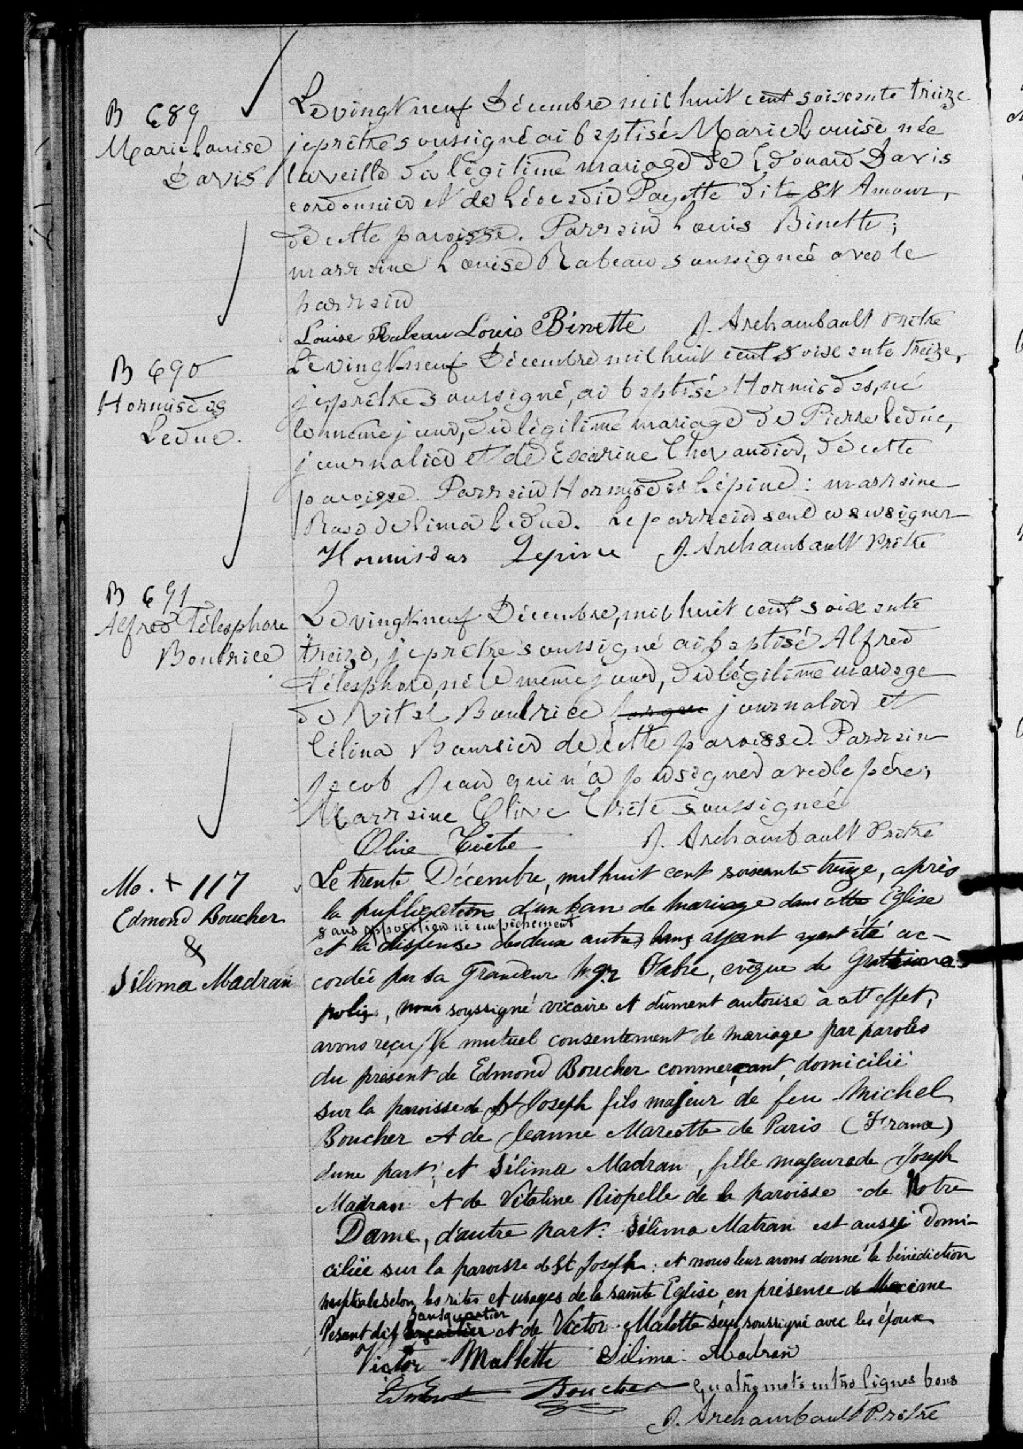 B 689
Marie Louise
Davis
Le vingt neuf Décembre mil huit cent soixante treize
je prêtre soussigné ai baptisé Marie Louise née
la veille du légitime mariage de Edouard Davis
cordonnier et de Léocadie Payette dite St Amour,
de cette paroisse. Parrain Louis Binette;
marraine Louise Rabeau soussignée avec le
parrain
Louise Rabeau Louis Binette J. Archambault Prêtre
B 690
Hormisdas
Leduc.
Le vingt neuf Décembre mil huit cent soixante treize,
je, prêtre soussigné, ai baptisé Hormisdas, né
le même jour, du légitime mariage de Pierre Leduc,
journalier et de Exérine Chevaudier, de cette
paroisse. Parrain Hormisdas Lépine: marraine
Rose de lima Leduc. Le parrain seul a su signer
Hormisdas Lepine J. Archambault Prêtre
B 691
Alfred Télesphore
Boutrice
Le vingt neuf Décembre, mil huit cent soixante
treize, je prêtre soussigné ai baptisé Alfred
Télesphore, né le même jour, du légitime mariage
de Vital Boutrice journalier et
Célina Boursier de cette paroisse. Parrain
Jacob Jean qui n'a pu signer avec le père;
Marraine Olive soussignée
Olive J. Archambault Prêtre
M. + 117
Edmond Boucher
&
Sélima Madran
Le trente Décembre, mil huit cent soixante-treize, après
la publication d'un ban de mariage dans cette Eglise
sans opposition ni empêchement
et la dispense des deux autres bans ayant ayant été ac-
cordée par sa Grandeur Mgr Fabre, evêque de Gratiano-
polis, nous soussigné vicaire et dûment autorisé à cet effet,
avons reçu le mutuel consentement de mariage par paroles
du présent de Edmond Boucher commerçant, domicilié
sur la paroisse de St Joseph, fils majeur de feu Michel
Boucher et de Jeanne Marcotte de Paris (France)
d'une part; et Sélima Madran, fille majeure de Joseph
Madran et de Vitaline Riopelle de la paroisse de Notre
Dame, d'autre part. Sélima Matran est aussi domi-
ciliée sur la paroisse de St Joseph: et nous leur avons donné la bénédiction
nuptiale selon les rites et usages de la sainte Eglise, en présence de Maxime
sansquartier
Pesant dit et de Victor Malette seul soussigné avec les époux
Victor Mallette Sélima Madran
Edmond Boucher quatre mots entre lignes bons
J. Archambault Prêtre